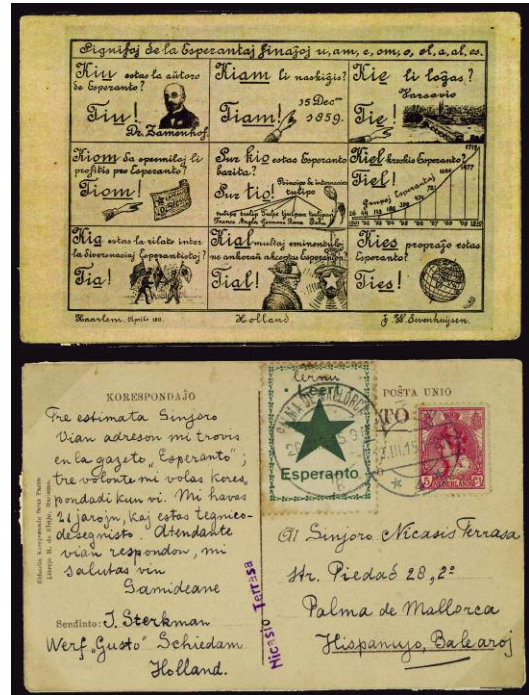 Signifoj de la Esperantaj finaĵoj u, am, e, om, o, el, a, al, es.
Kiu estas la aŭtoro
de Esperanto?
Tiu!
Dr. Zamenhof.
Kiam li naskiĝis?
Tiam!
15 Dec
1859.
Kie li loĝas?
Varsovio
Tie!
Kiom da spesmiloj li
profitis pro Esperanto?
Tiom!
Pur kio estas Esperanto
bazita?
Sur tio!
Principo de internacieco
tulipo
Kiel kreskis Esperanto?
Tiel!
Grupoj Esperantaj
Kia estas la rilato inter
la diversnaciaj Esperantistoj?
Tia!
Kial multaj eminentuloj
ne ankoraŭ akceptas Esperanton?
Tial!
Kies propraĵo estas
Esperanto?
Ties!
Haarlem. Aprilo
Holland.
J. W. Sevenhuijsen.
KORESPONDAĴO
POŜTA UNIO
Tre estimata Sinjoro
Vian adreson mi trovis
en la gazeto "Esperanto";
tre volonte mi volas kores,
pondadi kun vi. Mi havas
21 jarojn, kaj estas tegnico-
desegnisto. Atendante
vian respondon, mi
salutas vin
Samideane
Sendinto: J. Sterkman
Werf "Gusto" Schiedam
Holland.
Nicasio Terrasa
lernu
Leert
Esperanto
PALMA DE MALLORCA
Al Sinjoro Nicasis Terrasa
Str. Piedad 28, 2º
Palma de Mallorca
Hispanujo, Balearoj